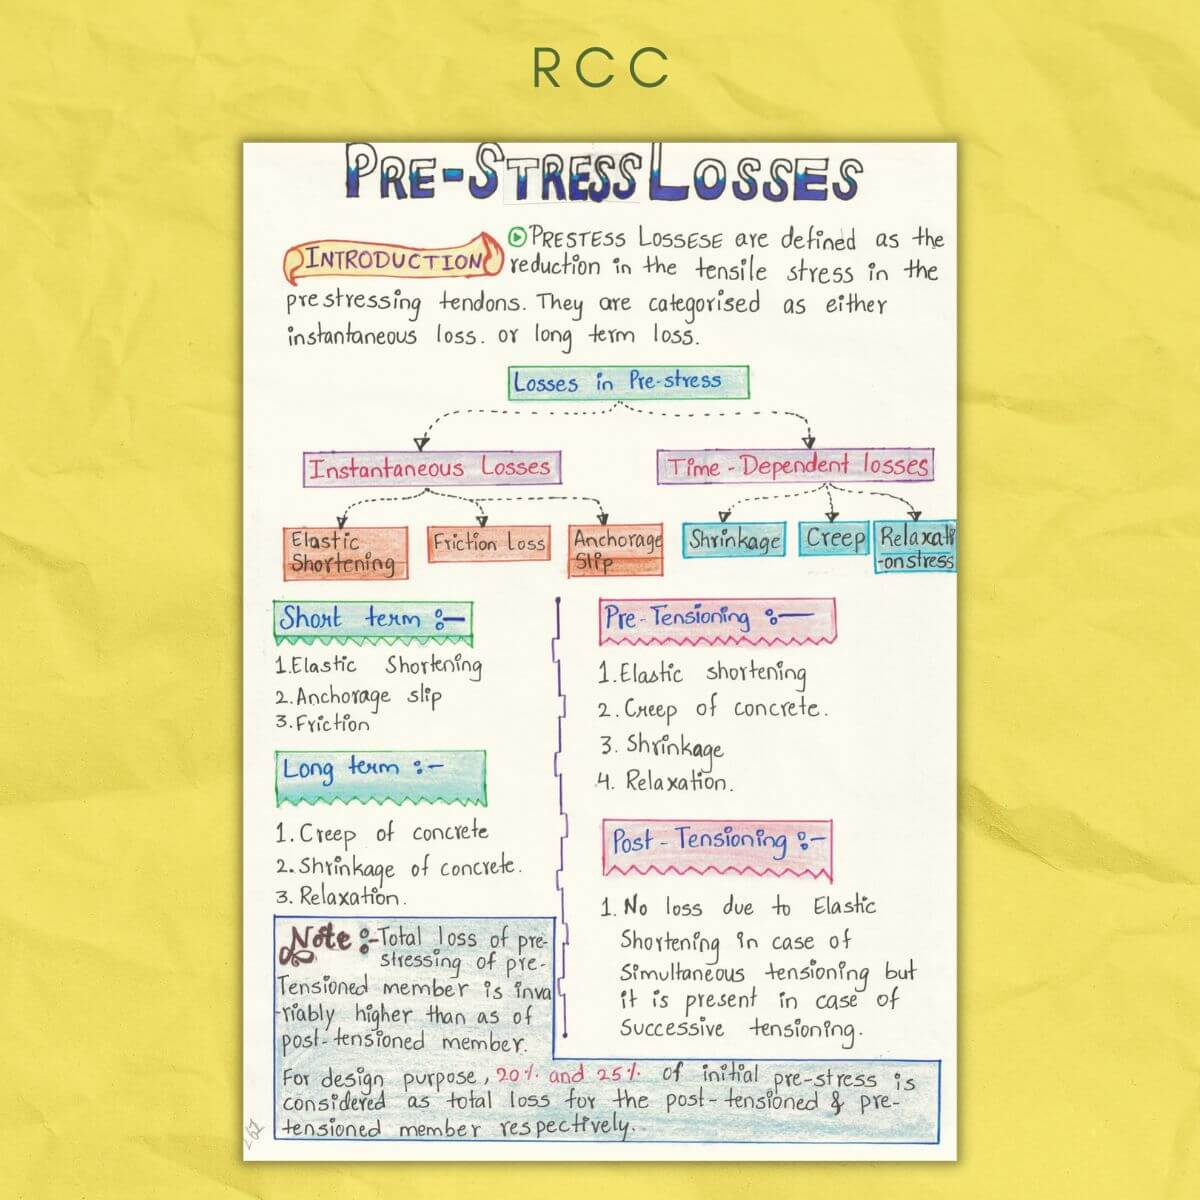 RCC
PRE-STRESS LOSSES
INTRODUCTION
PRESTESS LOSSESE are defined as the
reduction in the tensile stress in the
prestressing tendons. They are categorised as either
instantaneous loss. or long term loss.
Losses in Pre-stress
Instantaneous Losses
Time-Dependent losses
Elastic
Shortening
Friction Loss
Anchorage
Slip
Shrinkage
Creep
Relaxati
-on stress
Short term :-
1. Elastic Shortening
2. Anchorage slip
3. Friction
Long term :-
1. Creep of concrete
2. Shrinkage of concrete.
3. Relaxation.
Pre-Tensioning :-
1. Elastic shortening
2. Creep of concrete.
3. Shrinkage
4. Relaxation.
Post-Tensioning :-
1. No loss due to Elastic
Shortening in case of
Simultaneous tensioning but
it is present in case of
Successive tensioning.
Note :- Total loss of pre-
stressing of pre-
Tensioned member is inva
-riably higher than as of
post-tensioned member.
For design purpose, 20% and 25% of initial pre-stress is
considered as total loss for the post-tensioned & pre-
tensioned member respectively.